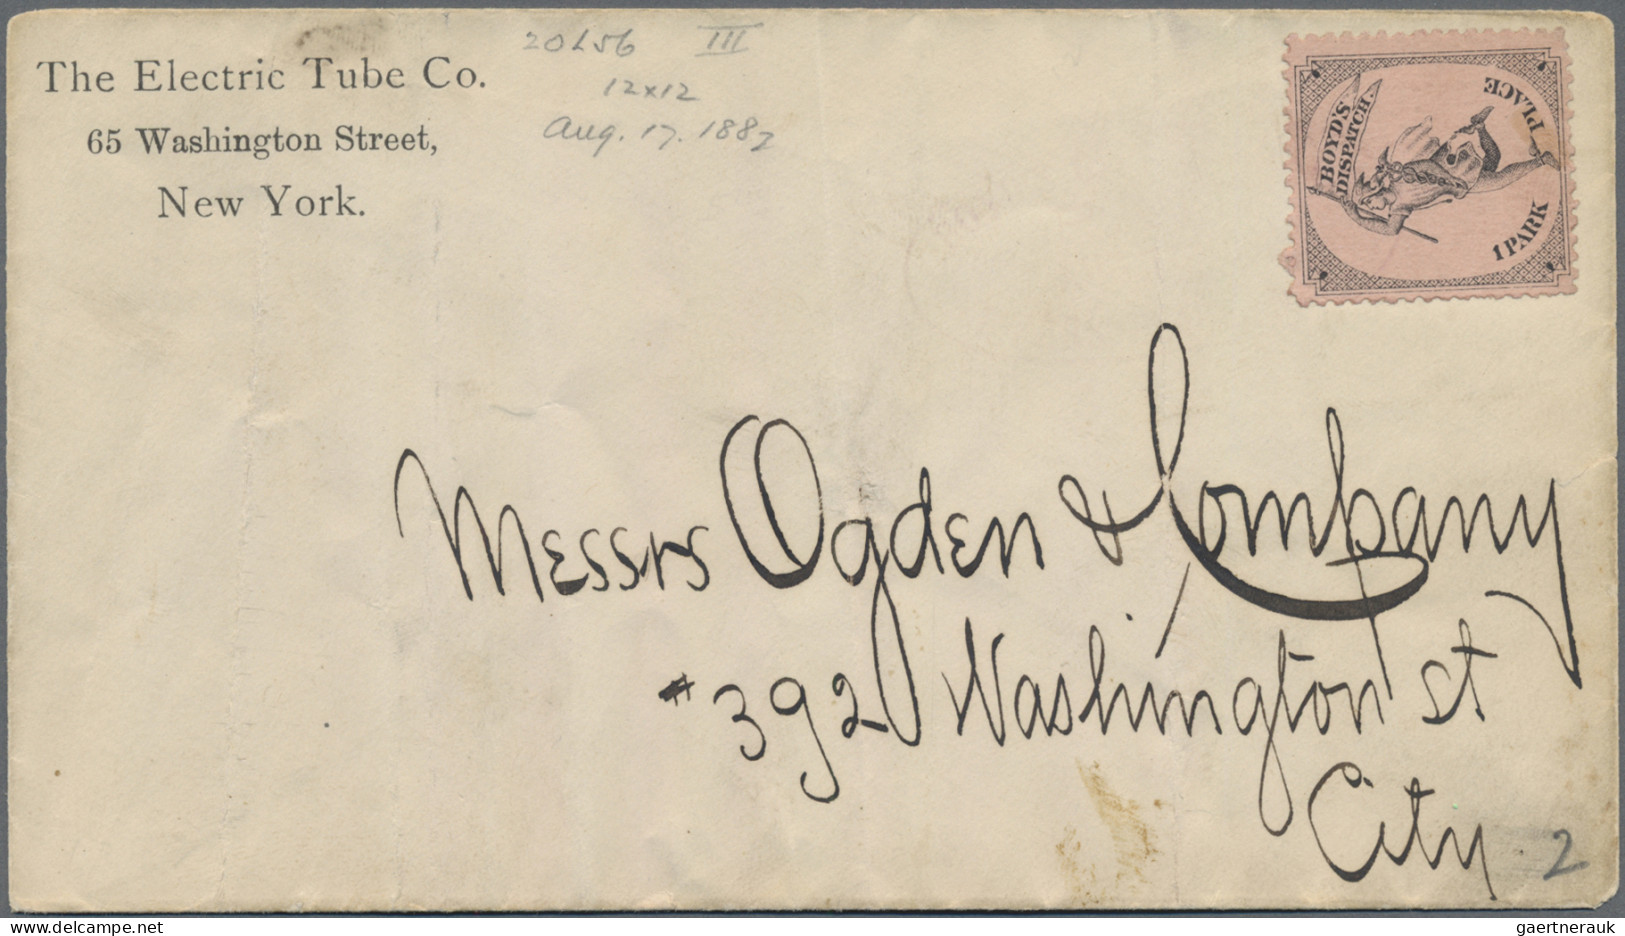 The Electric Tube Co.
65 Washington Street,
New York.
20L56 III
12x12
Aug. 17. 1882
BOYD'S
DISPATCH.
1 PARK PLACE
Messrs Ogden & Company
#392 Washington st
City
2
gaertnerauk